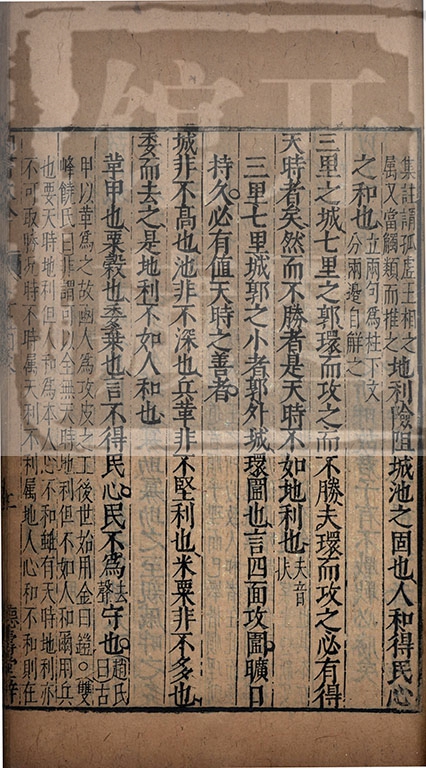 集註謂孤虛王相之
屬又當觸類而推之地利險阻城池之固也人和得民心
之和也立兩句為柱下文
分兩邊自解之
三里之城七里之郭環而攻之而不勝夫環而攻之必有得
天時者矣然而不勝者是天時不如地利也夫音
扶
三里七里城郭之小者郭外城環圍也言四面攻圍曠日
持久必有值天時之善者
城非不高也池非不深也兵革非不堅利也米粟非不多也
委而去之是地利不如人和也
革甲也粟穀也委棄也言不得民心民不為去
聲守也趙氏
曰古
甲以革為之故函人為攻皮之工後世始用金曰鎧○雙
峰饒氏曰非謂可以全無天時地利但不如人和爾用兵
也要天時地利但人和為本人心不和雖有天時地利亦
不可取勝
天利不利屬地人心和不和則在